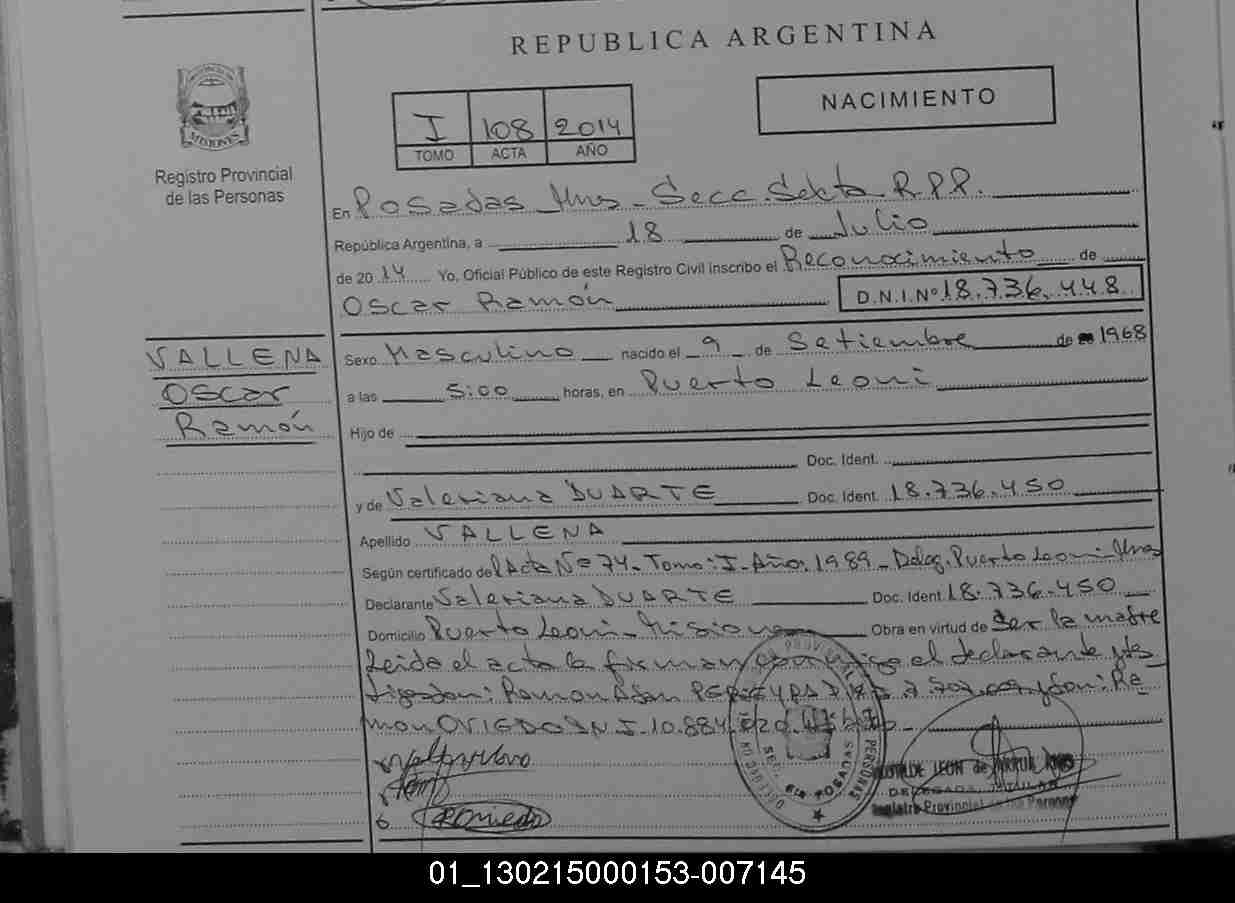 REPUBLICA ARGENTINA
MISIONES
Registro Provincial
de las Personas
I 108 2014
TOMO ACTA AÑO
NACIMIENTO
En Posadas Mnes - Secc. Sexta R.P.P.
República Argentina, a 18 de Julio
de 2014 Yo, Oficial Público de este Registro Civil inscribo el Reconocimiento de
Oscar Ramón D.N.I.Nº 18.736.448
VALLENA
Oscar
Ramón
Sexo Masculino nacido el 9 de Setiembre de 1968
a las 5:00 horas, en Puerto Leoni
Hijo de
Doc. Ident.
y de Valeriana DUARTE Doc. Ident. 18.736.450
Apellido VALLENA
Según certificado del Acta Nº 74 - Tomo: I - Año: 1989 - Deleg. Puerto Leoni Mnes
Declarante Valeriana DUARTE Doc. Ident. 18.736.450
Domicilio Puerto Leoni - Misiones Obra en virtud de Ser la madre
Leida el acta la firman conmigo el declarante y
tigos don: Ramon PEREYRA don: Ra-
mon OVIEDO D.N.I. 10.884.
SECC. 6ta POSADAS
PERSONAS
LEON de
DELEGADA TITULAR
Registro Provincial de las Personas
01_130215000153-007145